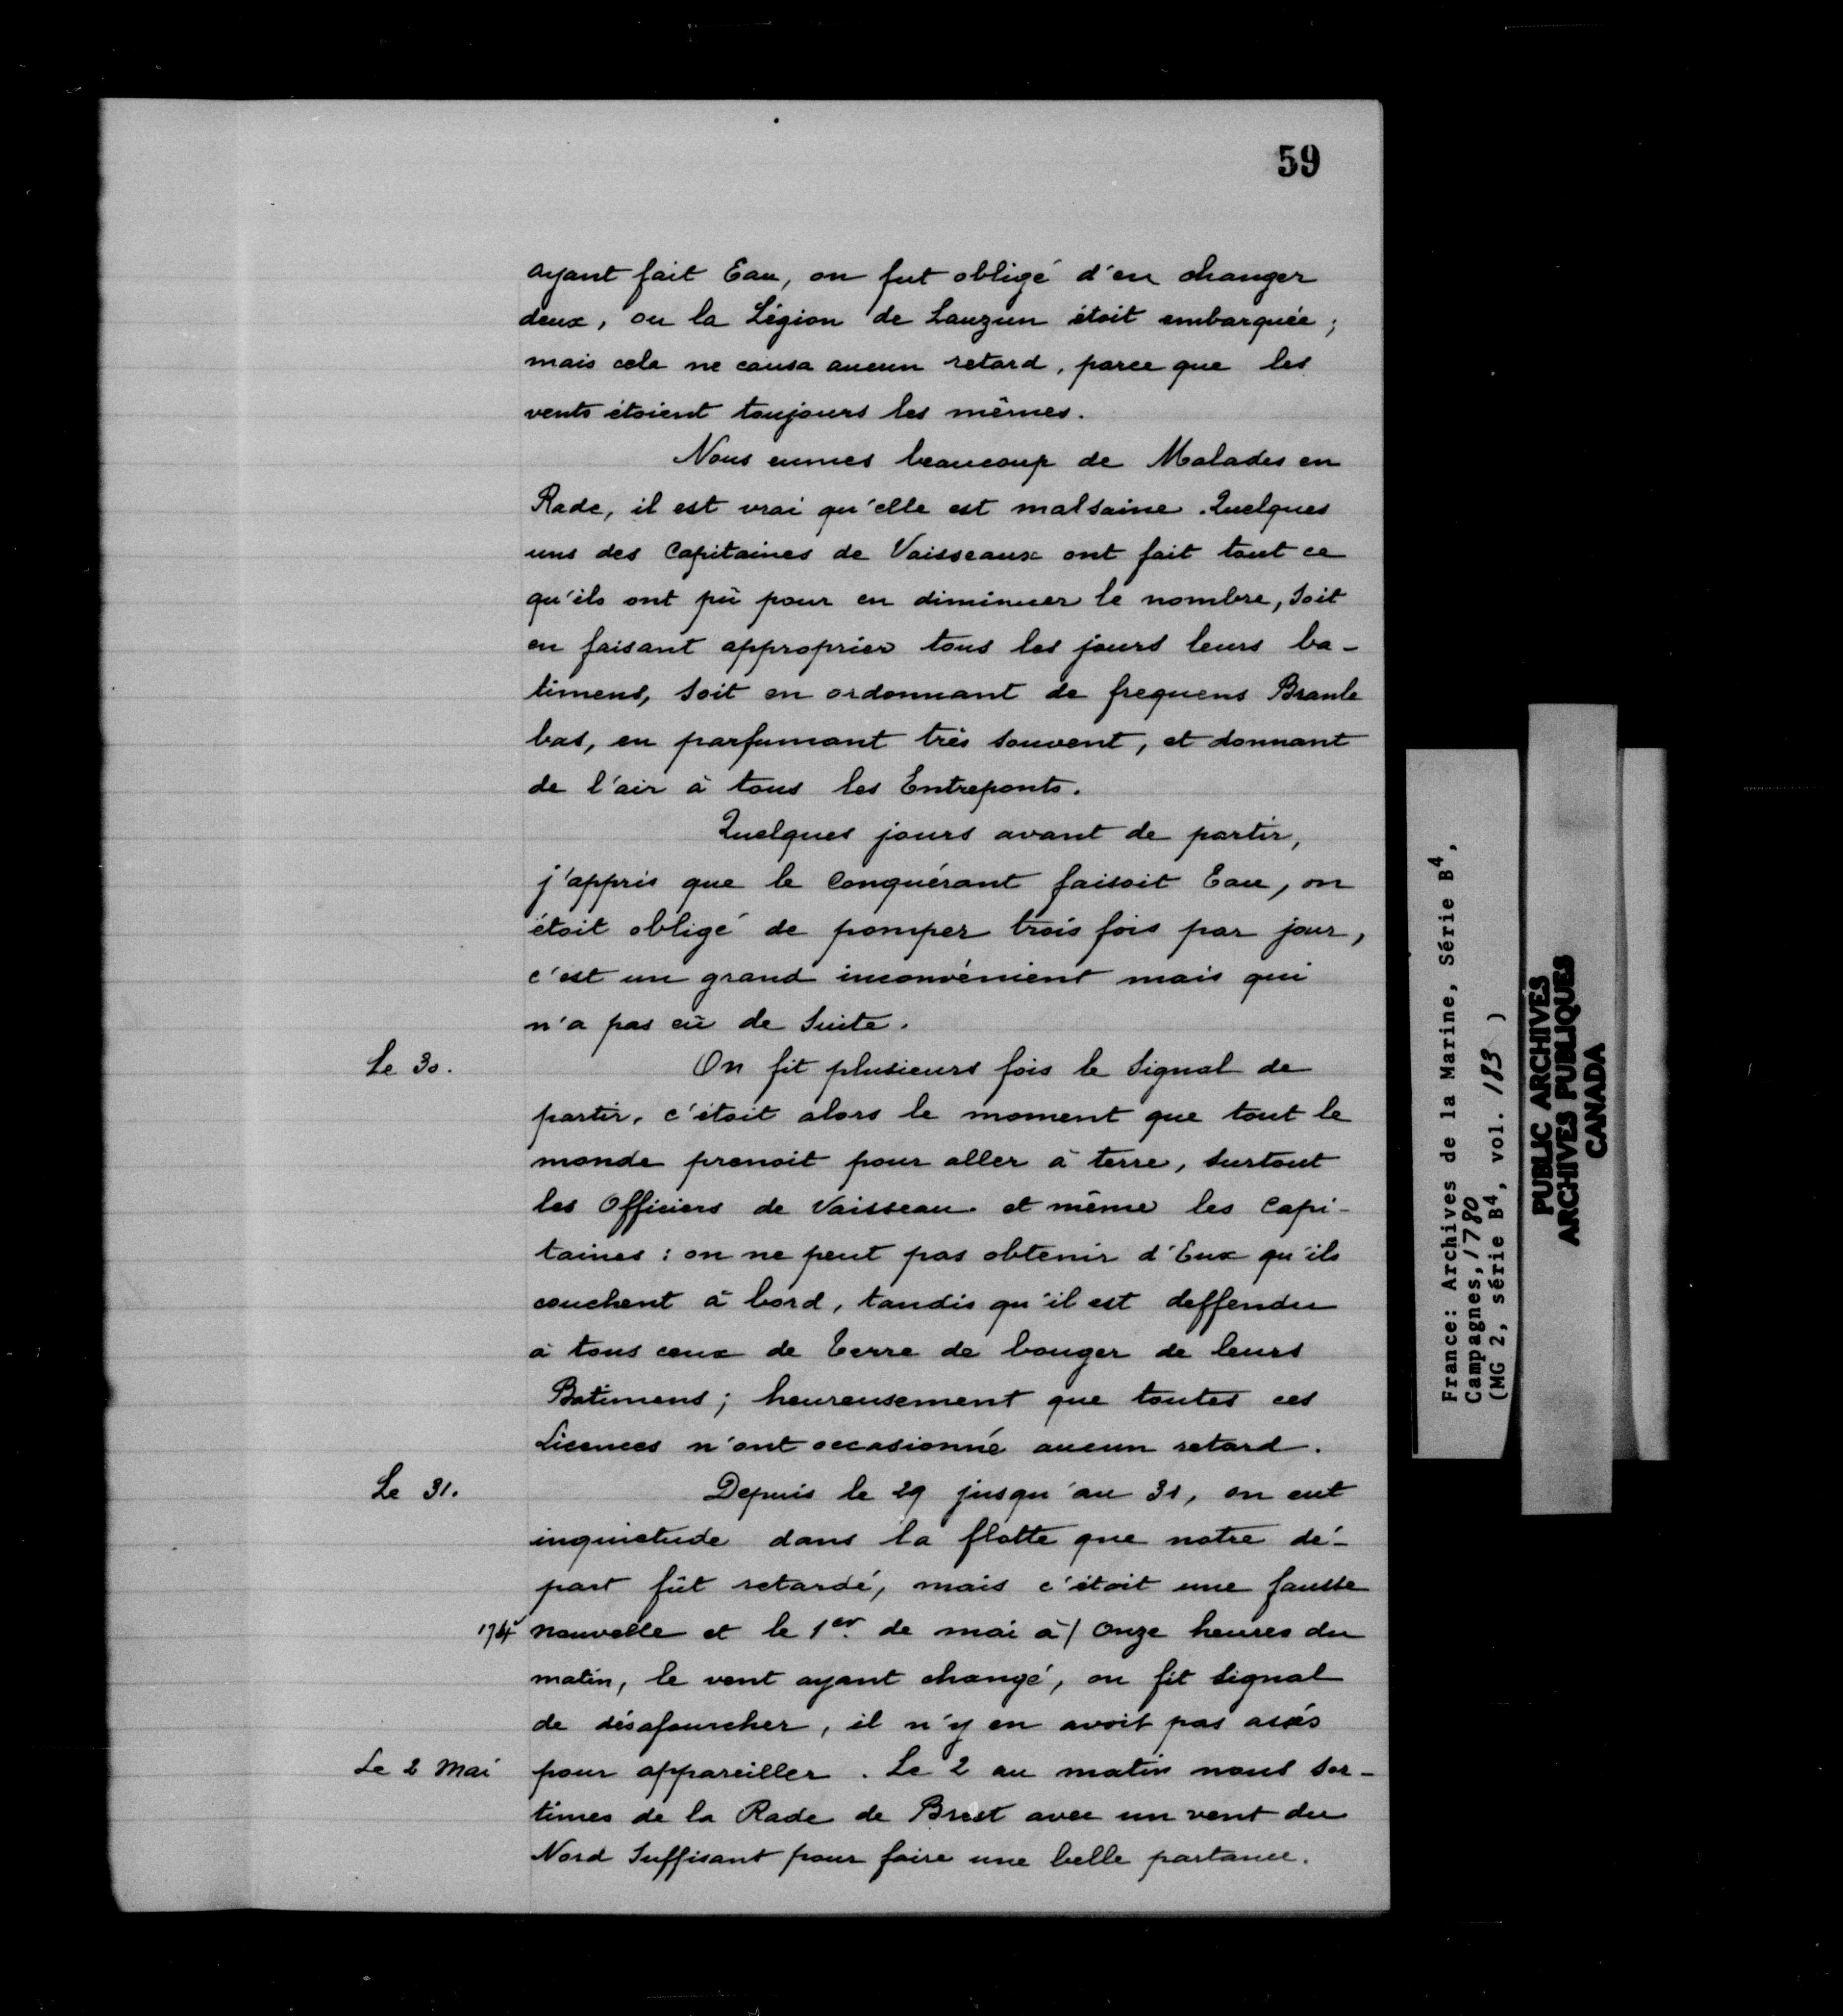 59
ayant fait Eau, on fut obligé d'en changer
deux, ou la Légion de Lauzun étoit embarquée ;
mais cela ne causa aucun retard, parce que les
vents étoient toujours les mêmes.
Nous eumes beaucoup de Malades en
Rade, il est vrai qu'elle est malsaine. Quelques
uns des Capitaines de Vaisseaux ont fait tout ce
qu'ils ont pû pour en diminuer le nombre, soit
en faisant approprier tous les jours leurs ba-
timens, soit en ordonnant de frequens Branle
bas, en parfumant très souvent, et donnant
de l'air à tous les Entreponts.
Quelques jours avant de partir,
j'appris que le Conquérant faisoit Eau, on
étoit obligé de pomper trois fois par jour,
c'est un grand inconvénient mais qui
n'a pas eû de Suite.
Le 30.
On fit plusieurs fois le Signal de
partir, c'étoit alors le moment que tout le
monde prenoit pour aller à terre, surtout
les Officiers de Vaisseau et même les Capi-
taines : on ne peut pas obtenir d'Eux qu'ils
couchent à bord, tandis qu'il est deffendu
à tous ceux de terre de bouger de leurs
Batimens ; heureusement que toutes ces
Licences n'ont occasionné aucun retard.
Le 31.
Depuis le 29 jusqu'au 31, on eut
inquietude dans la flotte que notre dé-
part fût retardé, mais c'étoit une fausse
174 nouvelle et le 1er. de mai à / Onze heures du
matin, le vent ayant changé, on fit signal
de désafourcher, il n'y en avoit pas assés
Le 2 Mai pour appareiller. Le 2 au matin nous sor-
times de la Rade de Brest avec un vent du
Nord Suffisant pour faire une belle partance.
France: Archives de la Marine, Série B4,
Campagnes, 1780
(MG 2, série B4, vol. 183 )
PUBLIC ARCHIVES
ARCHIVES PUBLIQUES
CANADA